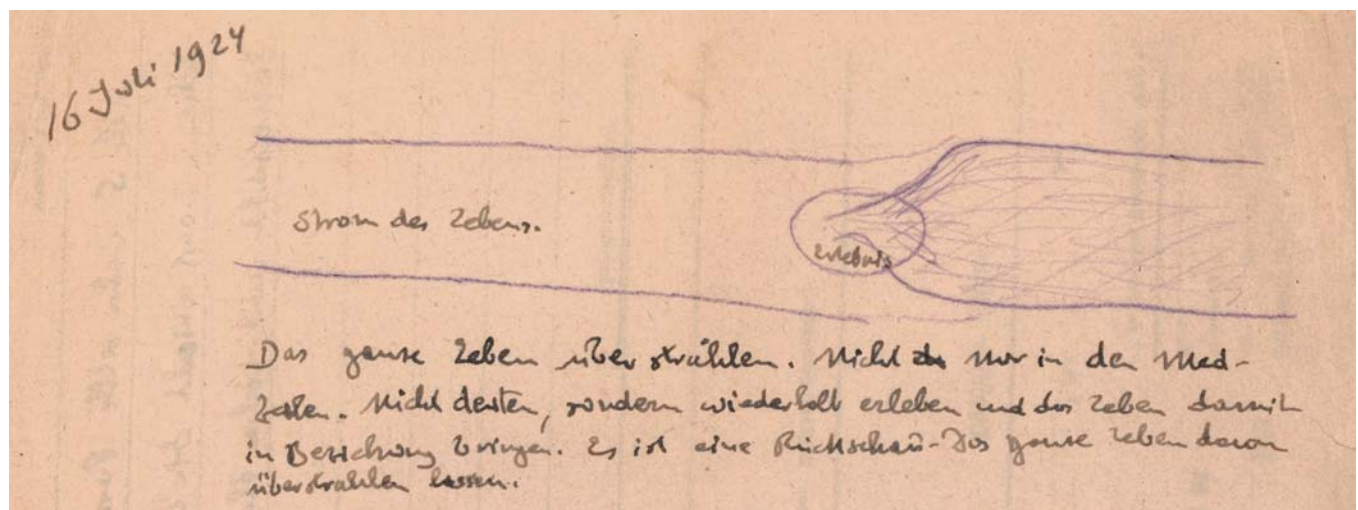 16 Juli 1924
Strom des Lebens.
Erlebnis
Das ganze Leben überstrahlen. Nicht nur in den Med-
Zeiten. Nicht denken, sondern wiederholt erleben und das Leben damit
in Beziehung bringen. Es ist eine Rückschau - Das ganze Leben davon
überstrahlen lassen.